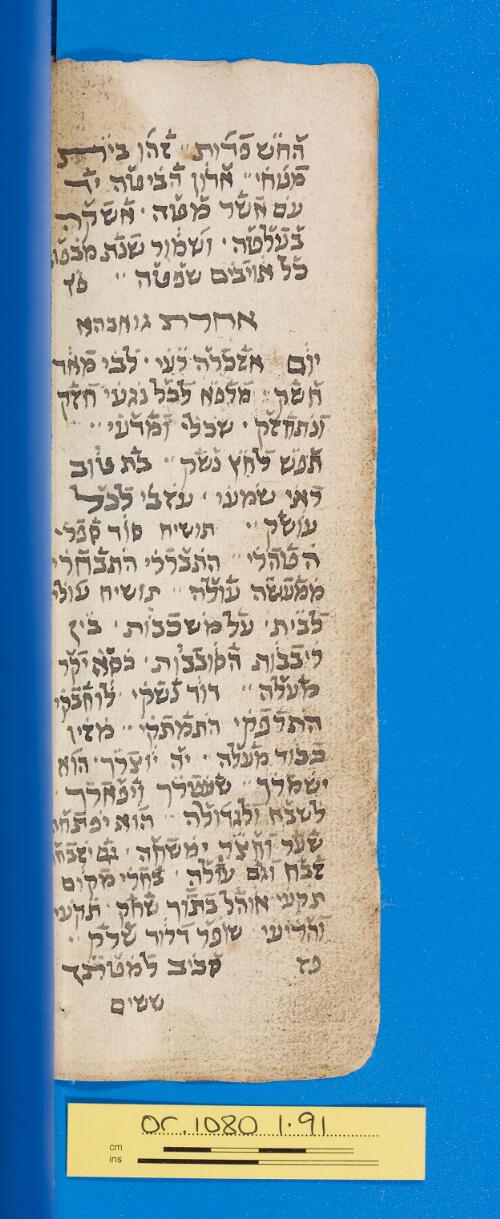 החש פדות זהו בירת
מטחי אדון הביטה יד
עם אשר מטה אשקה
בעלטה ושמור שנת
כל אויבים שפטה פז
אחרת
יום אזכרה לבי מאד
חשק מלפא לכל נגעי חזק
ונתחזק שכלי ומדעי
תפש לחץ נשק בת טוב
ראי שמעו עזבי לכל
עושק תושיח סוד
הטהרי התבררי התבחרי
ממעשה עולה תושיח
לבית על משכבות בין
ליבבות הסובבות כסא יקר
מעלה דוד נשקי לוחבקי
התרפקי התמתקי מזיו
כבוד מעלה יה יוצרך הוא
ישמרך שעטרך ויפארך
לשבח ולגדולה הוא
שער וחצר ימשחה גם
זבח וגם עולה בחרי מקום
תקעי אוהל בתוך שחק תקעי
והריעי שופר דרור
פז סביב למטר
ששים
or.1080 1.91
cm
ins